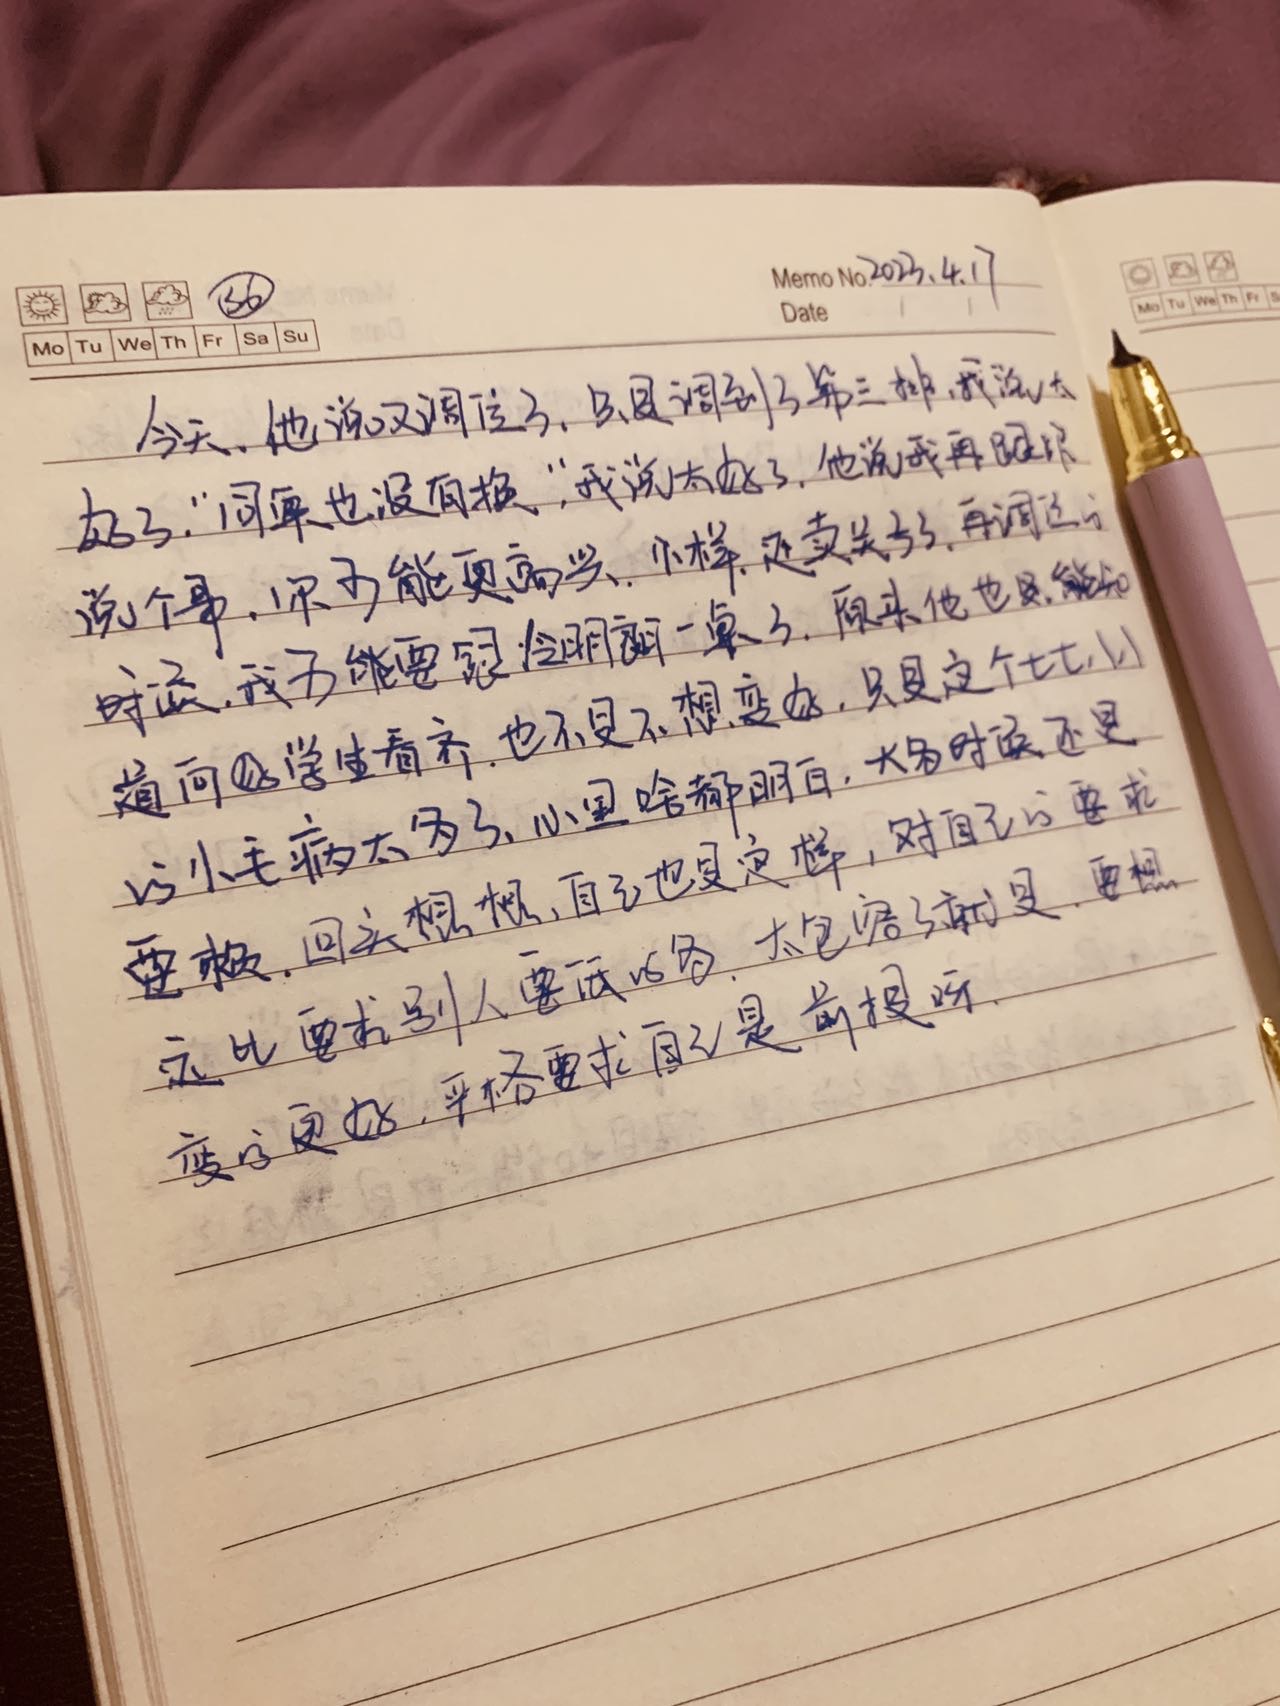 36
Memo No. 2023.4.17
Date / /
Mo Tu We Th Fr Sa Su
Mo Tu We Th Fr S
今天,他说又调位了,只是调到了第三排,我说太
好了,"同桌也没有换",我说太好了,他说我再跟你
说个事,你可能更高兴,小样,还卖关子了,再调位的
时候,我可能要跟 明 一桌了,原来他也是能知
道向好学生看齐,也不是不想变好,只是这个七七八八
的小毛病太多了,心里啥都明白,大多时候还是
要赖,回头想想,自己也是这样,对自己的要求
远比要求别人要低的多,太包容了就是,要想
变的更好,严格要求自己是前提呀.